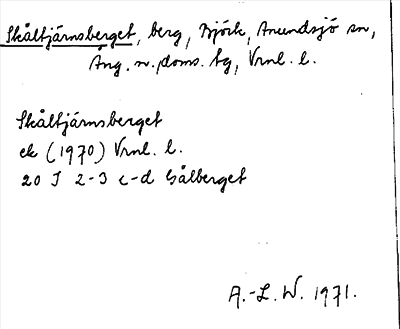 Skåltjärnsberget, berg, Björk, Anundsjö sn,
Ång. n. doms. tg, Vrnl. l.
Skåltjärnsberget
ek (1970) Vrnl. l.
20 J 2-3 c-d Gålberget
A.-L. W. 1971.